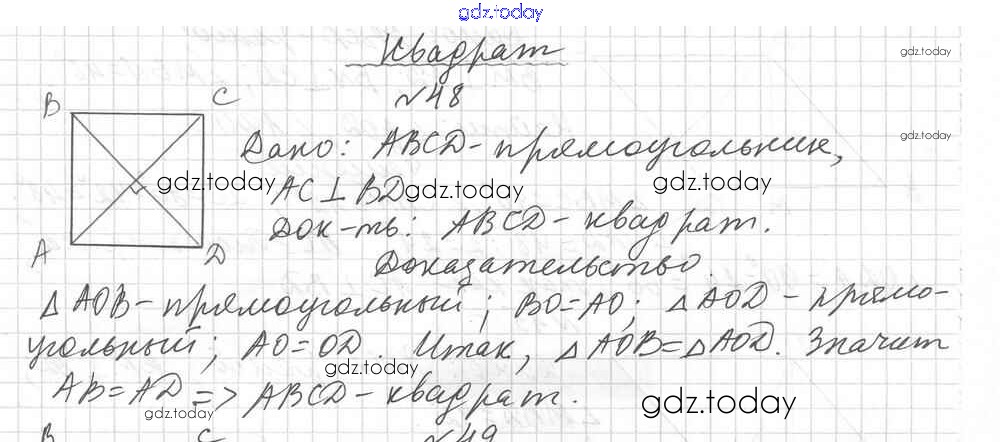 gdz.today
Квадрат
gdz.today
№48
B C
Дано: ABCD - прямоугольник,
gdz.today
AC⊥BD
gdz.today gdz.today gdz.today
Док-ть: ABCD - квадрат.
A D
Доказательство.
△AOB - прямоугольный; BO=AO; △AOD - прямо-
угольный; AO=OD. Итак, △AOB=△AOD. Значит
gdz.today
AB=AD => ABCD - квадрат.
gdz.today gdz.today
B C №49